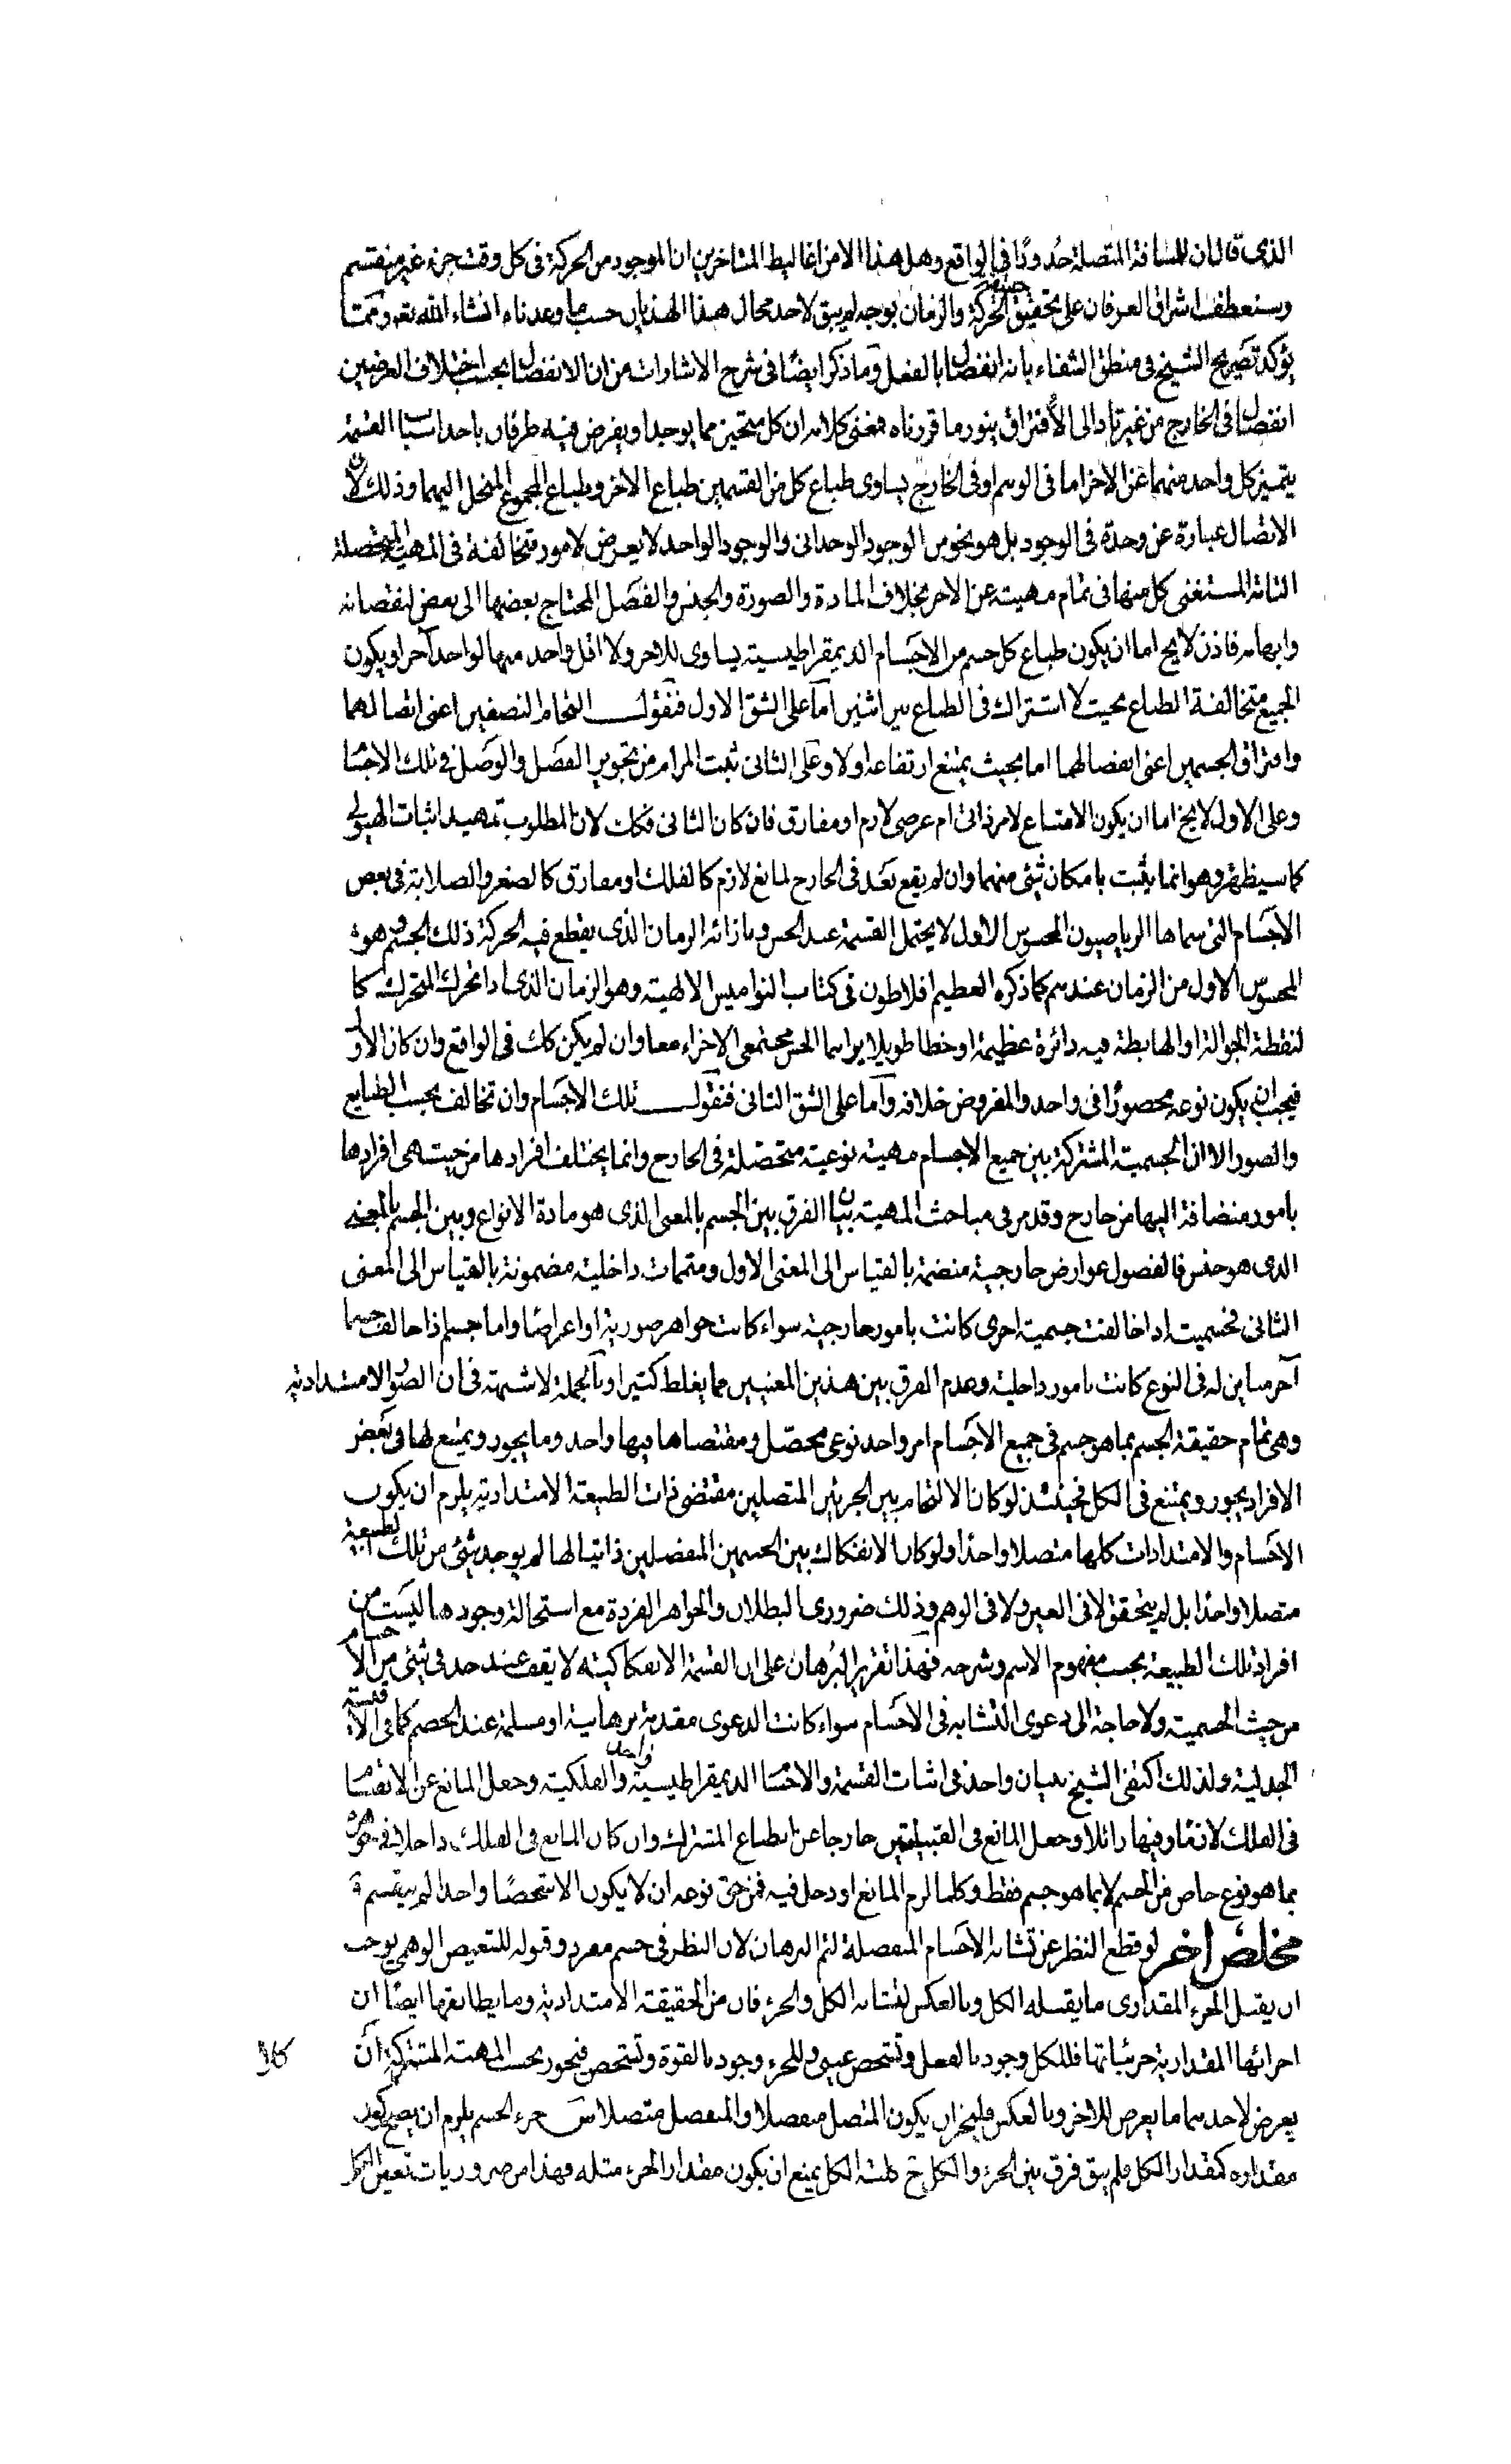 الذى قال ان للمسافة المتصلة حدودًا فى الواقع وهل هذا الا من اغاليط المتاخرين ان الموجود من الحركة فى كل وقت جزء غير منقسم
وسنعطف اشراق العرفان على تحقيق حقيقة الحركة والزمان بوجه لم يبق لاحد مجال هذا الهذيان حسب ما وعدناه انشاء الله تعه ومما
يؤكد تصريح الشيخ فى منطق الشفاء بانه انفصال بالفعل وما ذكر ايضًا فى شرح الاشارات من ان الانفصال بحسب اختلاف العرضين
انفصال فى الخارج من غير تاد الى الافتراق ينور ما قررناه فمعنى كلامه ان كل متحيز مما يوجد او يفرض فيه طرفان باحد اسباب القسمة
يتميز كل واحد منهما عن الاخر اما فى الوهم او فى الخارج يساوى طباع كل من القسمين طباع الاخر وطباع المجموع المنحل اليهما وذلك لان
الاتصال عبارة عن وحدة فى الوجود بل هو نحو من الوجود الوحدانى والوجود الواحد لا يعرض لامور متخالفة فى المهية المتحصلة
التامة المستغنى كل منها فى تمام مهيته عن الاخر بخلاف المادة والصورة والجنس والفصل المحتاج بعضها الى بعض لنقصانه
وابهامه فاذن لا يخ اما ان يكون طباع كل جسم من الاجسام الديمقراطيسية يساوى للاخر ولا اقل واحد منها لواحد آخر او يكون
الجميع متخالفة الطباع بحيث لا اشتراك فى الطباع بين اثنين اما على الشق الاول فنقول التحام النصفين اعنى اتصالهما
وافتراق الجسمين اعنى انفصالهما اما بحيث يمتنع ارتفاعه اولا وعلى الثانى ثبت المرام من تجويز الفصل والوصل فى تلك الاجسام
وعلى الاول لا يخ اما ان يكون الامتناع لامر ذاتى ام عرضى لازم او مفارق فان كان الثانى فكك لان المطلوب تمهيد اثبات الهيولى
كما سيظهر وهو انما يثبت بامكان شئ منهما وان لم يقع بعد فى الخارج لمانع لازم كالفلك او مفارق كالصغر والصلابة فى بعض
الاجسام التى سماها الرياضيون المحسوس الاول لا يحتمل القسمة عند الحس وبازائه الزمان الذى يقطع فيه الحركة ذلك الجسم وهو
المحسوس الاول من الزمان عندهم كما ذكره العظيم افلاطون فى كتاب النواميس الالهية وهو الزمان الذى اذا تحرك المتحرك كا
لنقطة الجوالة او الهابطة فيه دائرة عظيمة او خطا طويلا يراهما الحس مجتمعى الاجزاء معا وان لم يكن كك فى الواقع وان كان الاول
فيجب ان يكون نوعه محصورًا فى واحد والمفروض خلافه واما على الشق الثانى فنقول تلك الاجسام وان تخالف بحسب الطبايع
والصور الا ان الجسمية المشتركة بين جميع الاجسام مهية نوعية متحصلة فى الخارج وانما يختلف افرادها من حيث هى افرادها
بامور منضافة اليها من خارج وقد مر فى مباحث المهية بيان الفرق بين الجسم بالمعنى الذى هو مادة الانواع وبين الجسم بالمعنى
الذى هو جنس فالفصول عوارض خارجية منضمة بالقياس الى المعنى الاول ومتممات داخلية مضمونة بالقياس الى المعنى
الثانى فجسمية اذا خالفت جسمية اخرى كانت بامور خارجية سواء كانت جواهر صورية او اعراضًا واما جسم اذا خالف جسما
آخر مباين له فى النوع كانت بامور داخلية وعدم الفرق بين هذين المعنيين مما يغلط كثيرا وبالجملة لا شبهة فى ان الصور الامتدادية
وهى تمام حقيقة الجسم بما هو جسم فى جميع الاجسام امر واحد نوعى محصّل ومقتضاها فيها واحد وما يجوز ويمتنع لها فى بعض
الافراد يجوز ويمتنع فى الكل فحينئذ لو كان الالتحام بين الجزئين المتصلين مقتضى ذات الطبيعة الامتدادية يلزم ان يكون
الاجسام والامتدادات كلها متصلا واحدا ولو كان الانفكاك بين الجسمين المنفصلين ذاتيا لها لم يوجد شئ من تلك الطبيعة
متصلا واحدا بل لم يتحقق لا فى العين ولا فى الوهم وذلك ضرورى البطلان والجواهر الفردة مع استحالة وجودها ليست من
افراد تلك الطبيعة بحسب مفهوم الاسم وشرحه فهذا تقرير البرهان على ان القسمة الانفكاكية لا يقف عند حد فى شئ من الاجسام
من حيث الجسمية ولا حاجة الى دعوى التشابه فى الاجسام سواء كانت الدعوى مقدمة برهانية او مسلمة عند الخصم كما فى الاقيسة
الجدلية ولذلك اكتفى الشيخ ببيان واحد فى اثبات القسمة والاجسام الديمقراطيسية والفلكية وجعل المانع عن الانقسام
فى الفلك لازما وفيها زائلا وجعل المانع فى القبيلتين خارجا عن الطباع المشترك وان كان المانع فى الفلك داخلا فى جوهره
بما هو نوع خاص من الجسم لا بما هو جسم فقط وكلما لزم المانع او دخل فيه فمن حق نوعه ان لا يكون الا شخصًا واحدا لم ينقسم
مخلص اخر لو قطع النظر عن تشابه الاجسام المنفصلة لتم البرهان لان النظر فى جسم مفرد وقبوله للتبعيض الوهمى يوجب
ان يقبل الجزء المقدارى ما يقبله الكل وبالعكس لتشابه الكل والجزء فان من الحقيقة الامتدادية وما يطابقها ايضًا ان
اجزائها المقدارية جزئياتها فللكل وجود بالفعل وتشخص عينى وللجزء وجود بالقوة وتشخص فيجوز بحسب المهية المشتركة ان
يعرض لاحدهما ما يعرض للاخر وبالعكس فليجز ان يكون المتصل منفصلا والمنفصل متصلا جزء الجسم يلزم ان يصح كون
مقداره كمقدار الكل فلم يبق فرق بين الجزء والكل كلية الكل يمنع ان يكون مقدار الجزء مثله فهذا من ضروريات تعين الكل